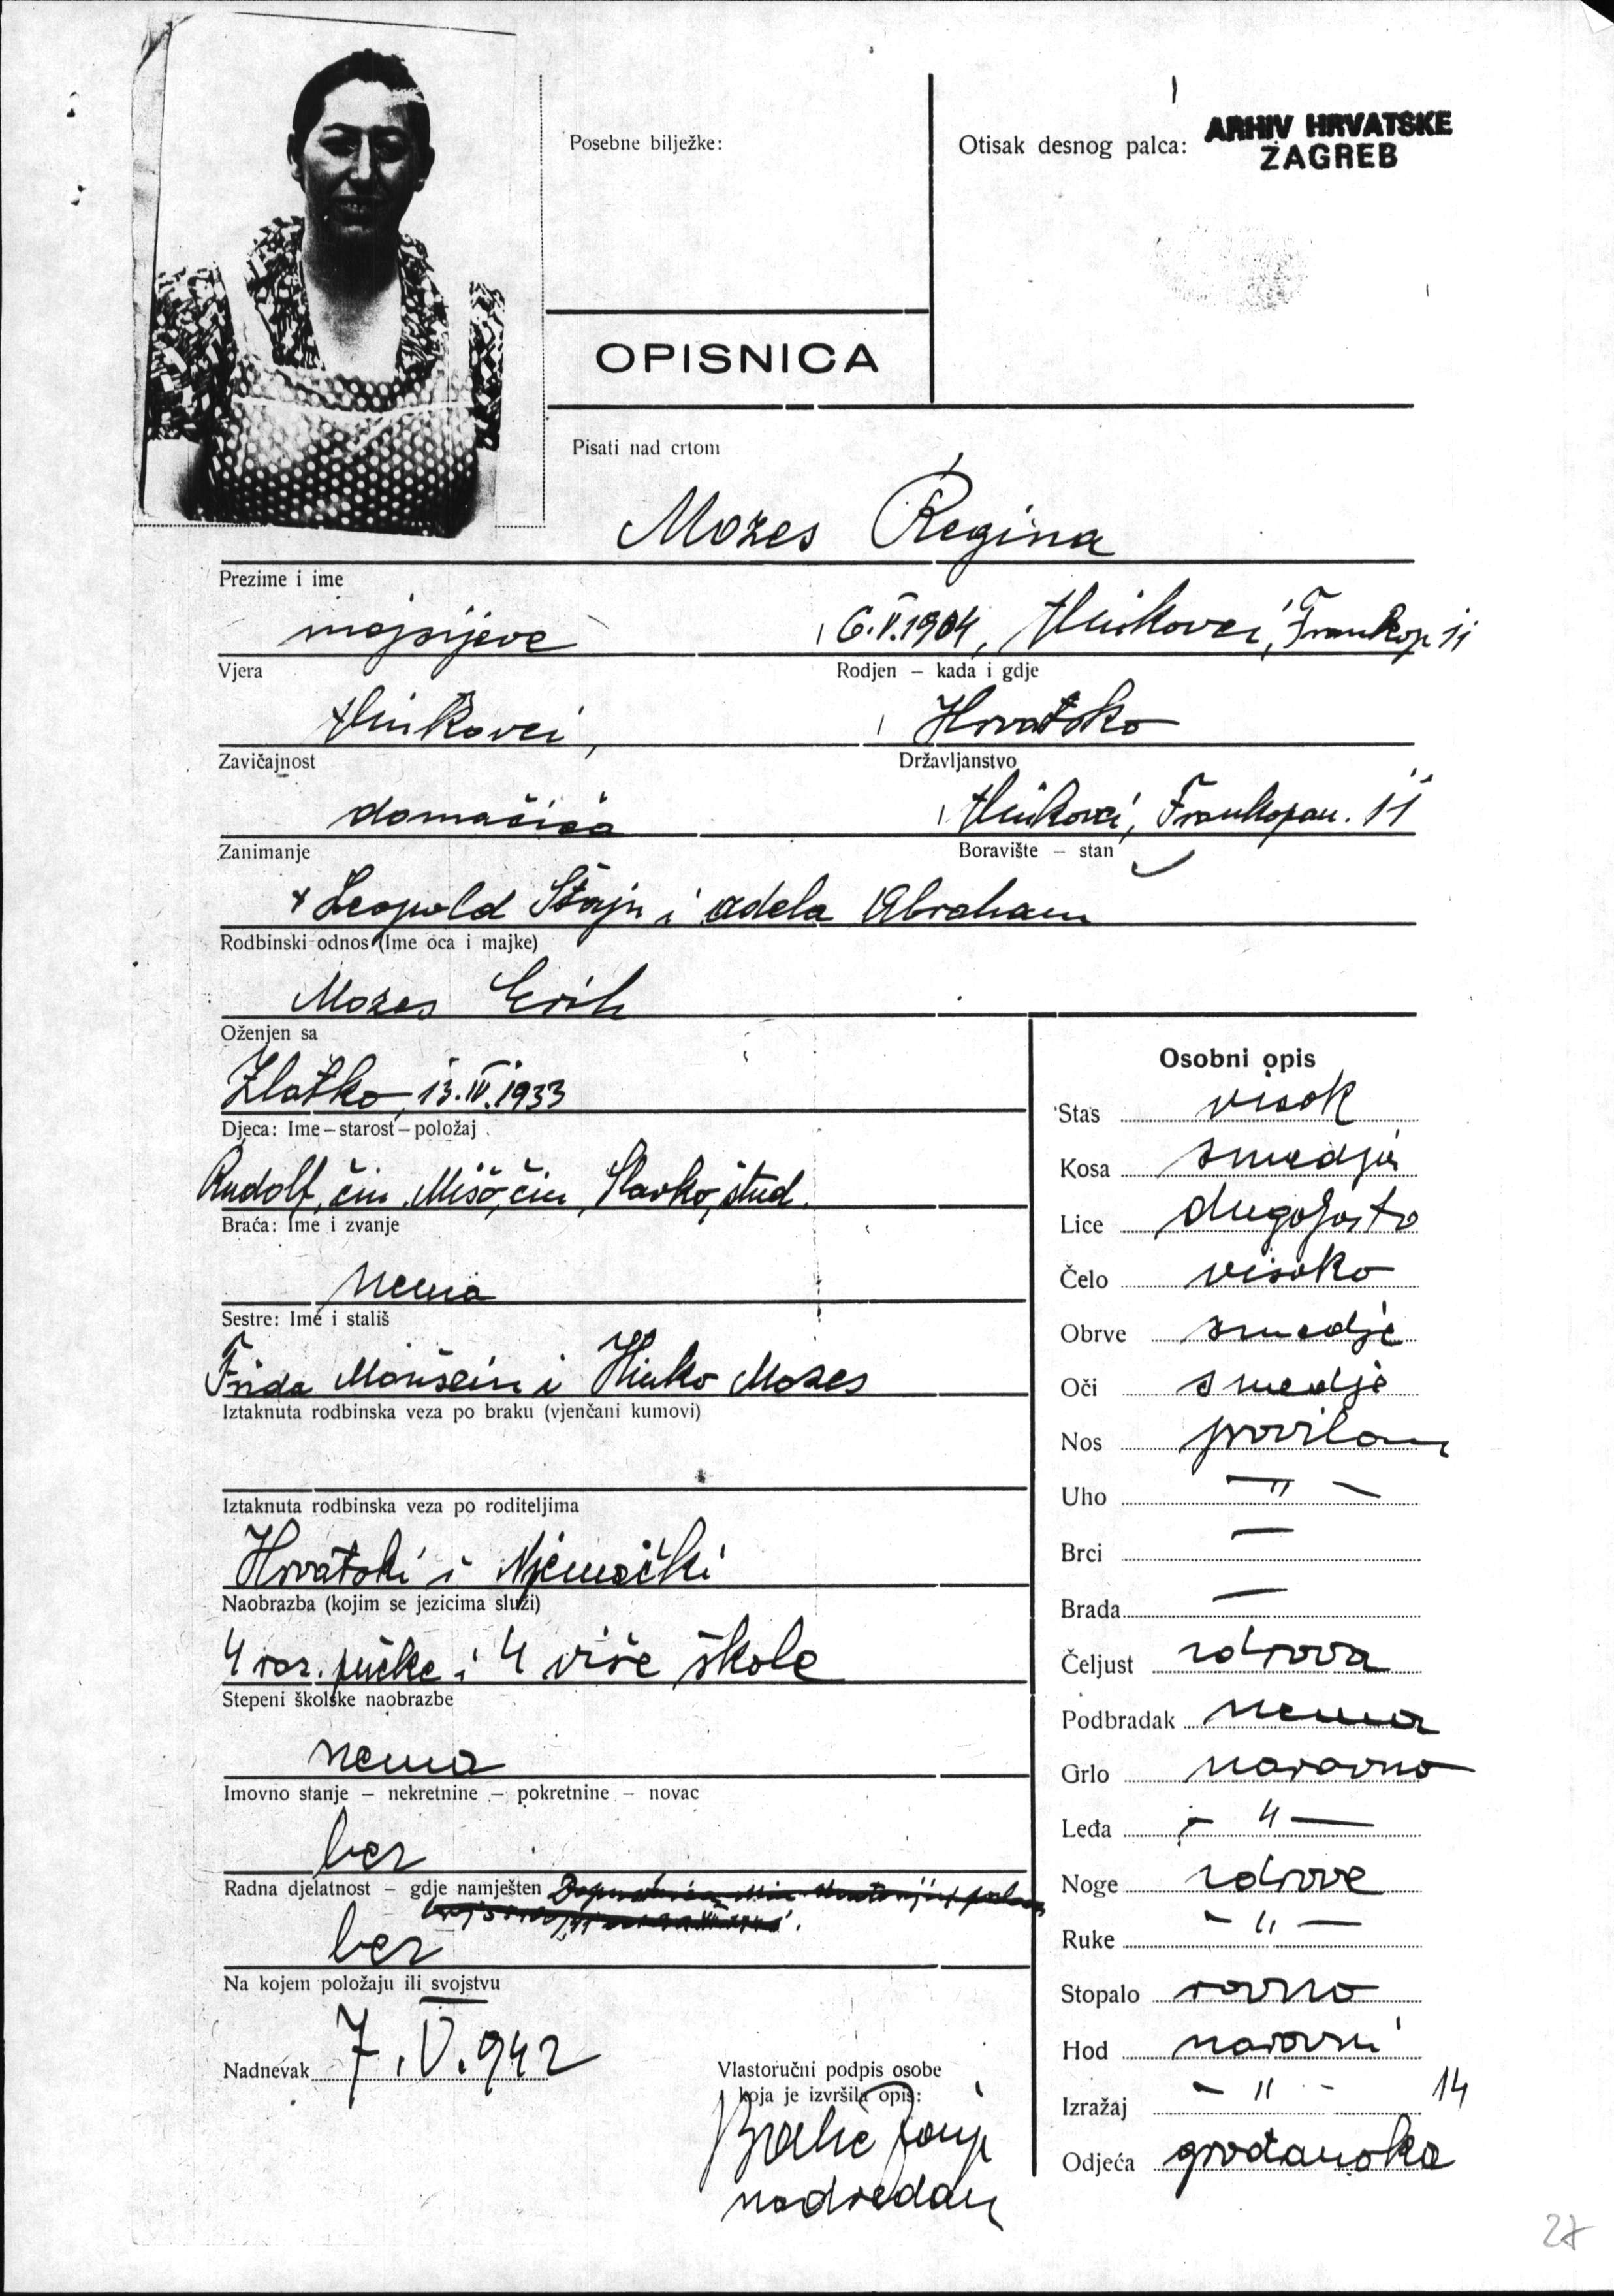 Posebne bilježke:
Otisak desnog palca:
ARHIV HRVATSKE
ZAGREB
OPISNICA
Pisati nad crtom
Mozes Regina
Prezime i ime
mojsijeve 6.V.1904, Vinkovci, Frankop 11
Vjera Rodjen – kada i gdje
Vinkovci, Hrvatsko
Zavičajnost Državljanstvo
domaćica Vinkovci, Frankopan. 11
Zanimanje Boravište – stan
Leopold Štajn i adela Abraham
Rodbinski odnos (Ime oca i majke)
Mozes Erih
Oženjen sa
Zlatko, 13.IV.1933
Djeca: Ime – starost – položaj
Rudolf, čin, Mišo, čin, Slavko, stud.
Braća: Ime i zvanje
nema
Sestre: Ime i stališ
Frida i Hinko Mozes
Iztaknuta rodbinska veza po braku (vjenčani kumovi)
Iztaknuta rodbinska veza po roditeljima
Hrvatski i Njemački
Naobrazba (kojim se jezicima služi)
4 raz. pučke i 4 više škole
Stepeni školske naobrazbe
nema
Imovno stanje – nekretnine – pokretnine – novac
bez
Radna djelatnost – gdje namješten
bez
Na kojem položaju ili svojstvu
Nadnevak 7.V.942
Vlastoručni podpis osobe
koja je izvršila opis:
Osobni opis
Stas visok
Kosa smedja
Lice dugoljasto
Čelo visoko
Obrve smedje
Oči smedje
Nos pravilan
Uho – " –
Brci –
Brada –
Čeljust zdrava
Podbradak nema
Grlo naravno
Leđa – " –
Noge zdrave
Ruke – " –
Stopalo ravno
Hod naravni
Izražaj – " – 14
Odjeća građanska
27